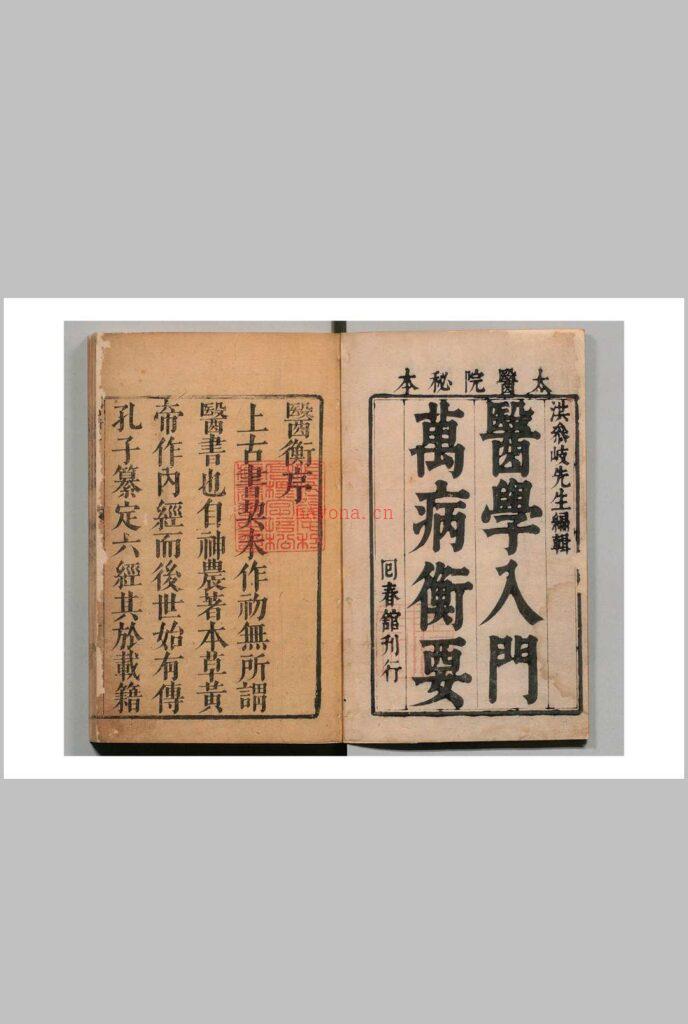 太醫院秘本
洪飛岐先生編輯
醫學入門
萬病衡要
回春舘刊行
醫衡序
上古書契未作初無所謂
醫書也自神農著本草黃
帝作內經而後世始有傳
孔子纂定六經其於載籍
nayona.cn